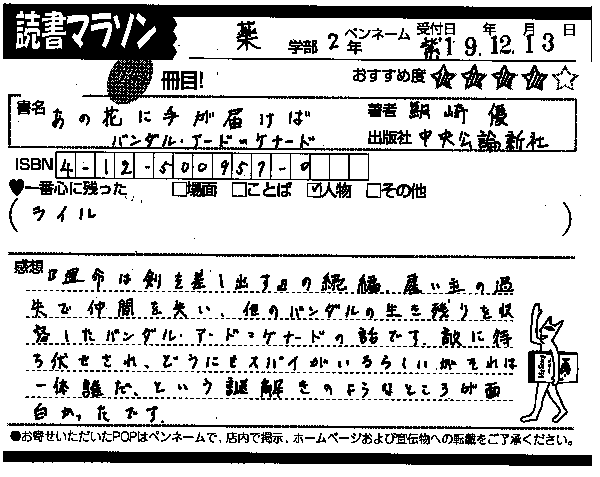 読書マラソン
薬 学部 2年 ペンネーム 紫 受付日 年 月 日 19.12.13
冊目! おすすめ度 ★★★★☆
書名 あの花に手が届けば 著者 駒崎 優
バンダル・アード=ケナード 出版社 中央公論新社
ISBN 4-12-500957-0
♥一番心に残った □場面 □ことば ☑人物 □その他
(ライル)
感想 『運命は剣を差し出す』の続編。雇い主の過
失で仲間を失い、他のバンダルの生き残りを収
容したバンダル・アード=ケナードの話です。敵に待
ち伏せされ、どうにもスパイがいるらしいがそれは
一体誰だ、という謎解きのようなところが面
白かったです。
●お寄せいただいたPOPはペンネームで、店内で掲示、ホームページおよび宣伝物への転載をご了承ください。